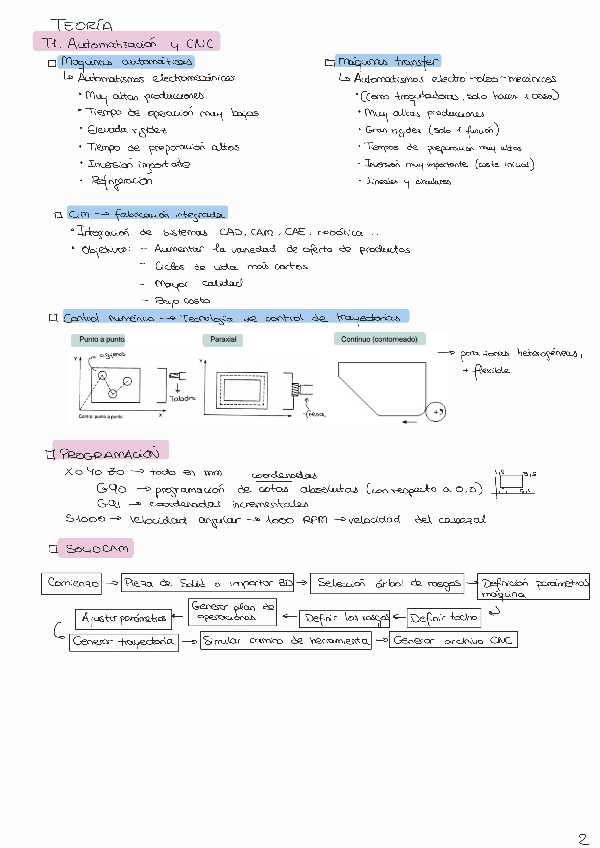 TEORÍA
T1. Automatización y CNC
Maquinas automáticas
↳ Automatismos electromecánicos
• Muy altas producciones
• Tiempo de operación muy bajos
• Elevada rigidez
• Tiempo de preparación altos
• Inversión importante
• Refrigeración
Máquinas transfer
↳ Automatismos electro-oleo-mecánicos
• (como troqueladoras, solo hacen 1 cosa)
• Muy altas producciones
• Gran rigidez (solo 1 función)
• Tiempos de preparación muy altos
• Inversión muy importante (coste inicial)
• Lineales y circulares
CIM → fabricación integrada
• Integración de sistemas CAD, CAM, CAE, robótica ...
• Objetivos: - Aumentar la variedad de oferta de productos
- Ciclos de vida más cortos
- Mayor calidad
- Bajo costo
Control numérico → Tecnología de control de trayectorias
Punto a punto
Paraxial
Continuo (contorneado)
agujeros
Y
X
Taladro
Control punto a punto
Y
X
fresa
→ para zonas heterogéneas,
+ flexible
PROGRAMACIÓN
X0 Y0 Z0 → todo en mm coordenadas
G90 → programación de cotas absolutas (con respecto a 0,0)
G91 → coordenadas incrementales
S1000 → Velocidad angular → 1000 RPM → velocidad del cabezal
SOLIDCAM
Comienzo → Pieza de Solid o importar 3D → Selección árbol de rasgos → Definición parámetros máquina
Ajustar parámetros ← Generar plan de operaciones ← Definir los rasgos ← Definir tocho
Generar trayectoria → Simular camino de herramienta → Generar archivo CNC
2